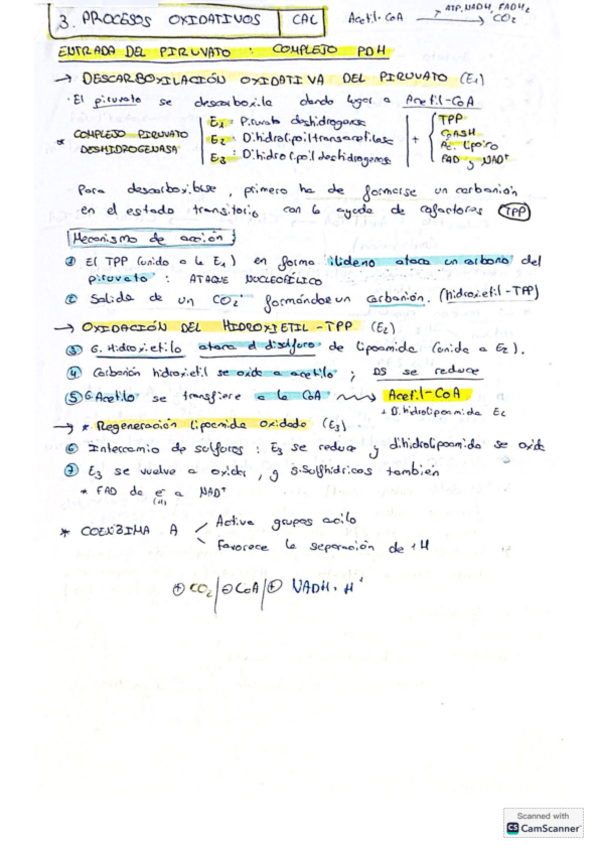 3. PROCESOS OXIDATIVOS | CAC Acetil-CoA → CO2
ATP, NADH, FADH2
ENTRADA DEL PIRUVATO : COMPLEJO PDH
→ DESCARBOXILACIÓN OXIDATIVA DEL PIRUVATO (E1)
· El piruvato se descarboxila dando lugar a Acetil-CoA
* COMPLEJO PIRUVATO DESHIDROGENASA
E1 = Piruvato deshidrogenasa
E2 = Dihidrolipoiltransacetilasa
E3 = Dihidrolipoildeshidrogenasa
+
TPP
CoASH
Ac. lipoico
FAD y NAD+
Para descarboxilase, primero ha de formarse un carbanión
en el estado transitorio con la ayuda de cofactores (TPP)
Mecanismo de acción
① El TPP (unido a la E1) en forma ilideno ataca un carbono del
piruvato : ATAQUE NUCLEOFÍLICO
② Salida de un CO2 formándose un carbanión. (hidroxietil-TPP)
→ OXIDACIÓN DEL HIDROXIETIL-TPP (E2)
③ G. Hidroxietilo ataca el disulfuro de lipoamida (unida a E2).
④ Carbanión hidroxietil se oxida a acetilo ; DS se reduce
⑤ G Acetilo se transfiere a la CoA → Acetil-CoA
+ Dihidrolipoamida E2
→ * Regeneración lipoamida oxidada (E3)
⑥ Intercambio de sulfuros : E3 se reduce y dihidrolipoamida se oxida
⑦ E3 se vuelve a oxidar, y g. sulfhídricos también
* FAD da e- a NAD+
(H)
* COENZIMA A
Activa grupos acilo
Favorece la separación de + H
⊕ CO2 / ⊖ CoA / ⊕ NADH + H+
Scanned with
CS CamScanner